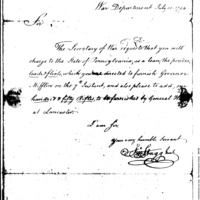 War Department July 10. 1794
Sir
The Secretary of War requests that you will
charge to the State of Pennsylvania, as a loan, the powder,
lead & flints, which you are directed to furnish Governor
Mifflin on the 9th Instant, and also please to add
hundred & fifty Rifles, to be furnished by General
at Lancaster.
I am Sir
Your very humble Servant
Jno Stagg Jr